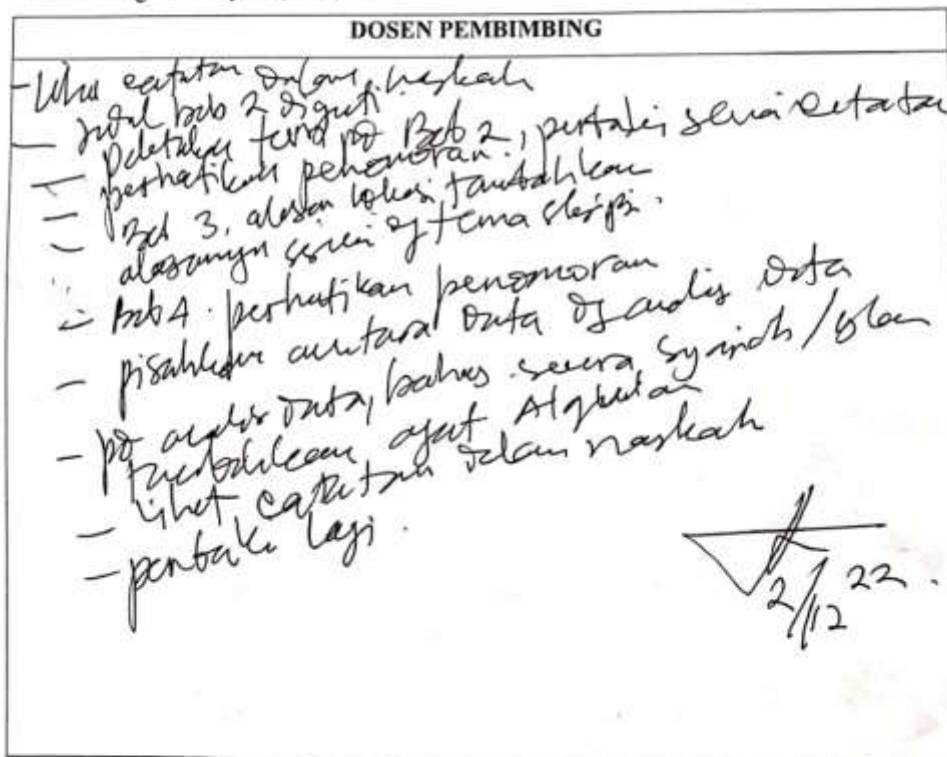 DOSEN PEMBIMBING
- catatan dalam naskah
- judul bab 2 diganti
- teori pd Bab 2, perbaiki sesuai catatan
- perhatikan penomoran.
- Bab 3, alasan lokasi tambahkan
alasannya sesuai dg tema skripsi.
- Bab 4. perhatikan penomoran
- pisahkan antara data dg analis data
- pd analis data, bahas secara syariah/islam
ayat Alquran
- lihat catatan dalam naskah
- perbaiki lagi.
2/12 22.